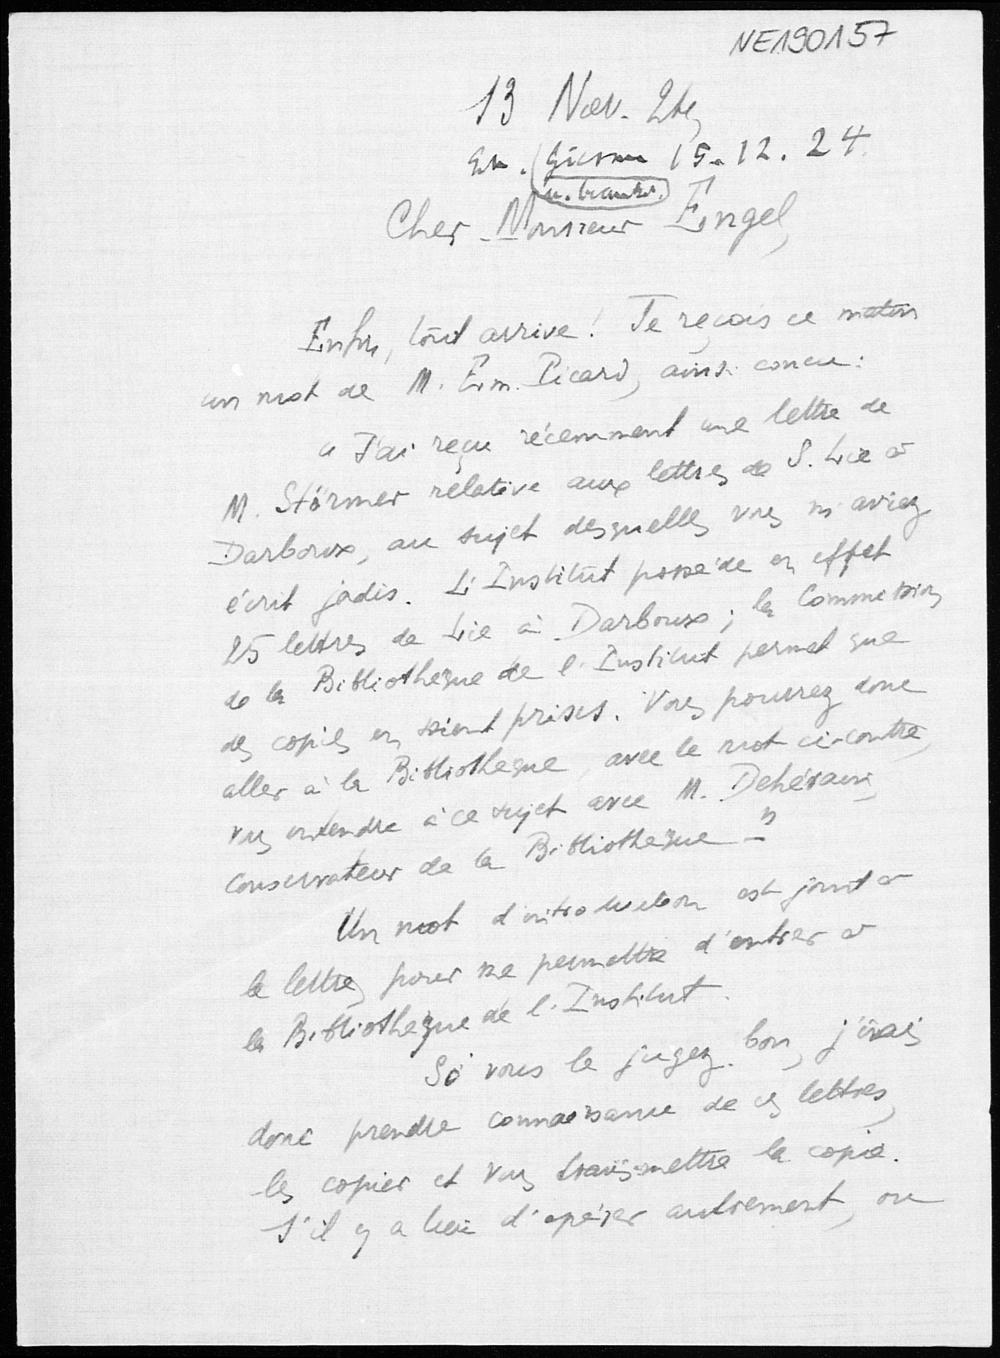 NE190157
13 Nov. 24
15.12.24
Cher Monsieur Engel,
Enfin, tout arrive! Je reçois ce matin
un mot de M. Em. Picard, ainsi concu:
« J'ai reçu récemment une lettre de
M. Störmer relative aux lettres de S. Lie à
Darboux, au sujet desquelles vous m'aviez
écrit jadis. L'Institut possède en effet
25 lettres de Lie à Darboux; la Commission
de la Bibliothèque de l'Institut permet que
des copies en soient prises. Vous pourrez donc
aller à la Bibliothèque, avec le mot ci-contre,
vous entendre à ce sujet avec M. Dehérain,
conservateur de la Bibliothèque – »
Un mot d'introduction est joint à
la lettre, pour me permettre d'entrer à
la Bibliothèque de l'Institut.
Si vous le jugez bon, j'irai
donc prendre connaissance de ces lettres,
les copier et vous transmettre la copie.
S'il y a lieu d'opérer autrement, ou